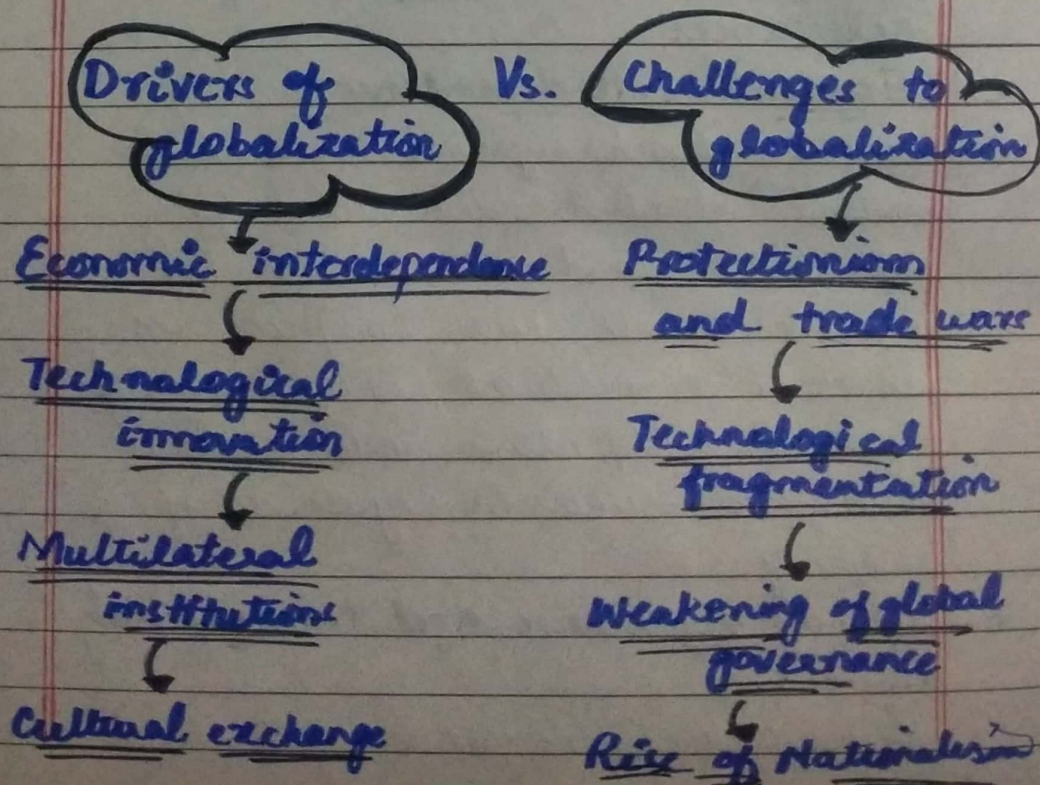 Drivers of
globalization
Vs.
Challenges to
globalization
Economic interdependence
Technological
innovation
Multilateral
institutions
Cultural exchange
Protectionism
and trade wars
Technological
fragmentation
Weakening of global
governance
Rise of Nationalism